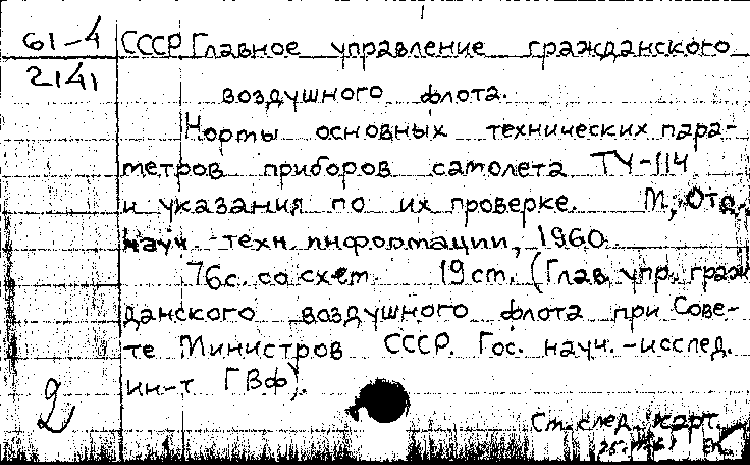 61-4
2141
СССР Главное управление гражданского
воздушного флота.
Нормы основных технических пара-
метров приборов самолета ТУ-114
и указания по их проверке. М, Отд.
науч.-техн. информации, 1960.
76с. со схем. 19 ст. (Глав. упр. граж
данского воздушного флота при Сове-
те Министров СССР. Гос. науч.-исслед.
ин-т ГВФ).
2
См. след. карт.